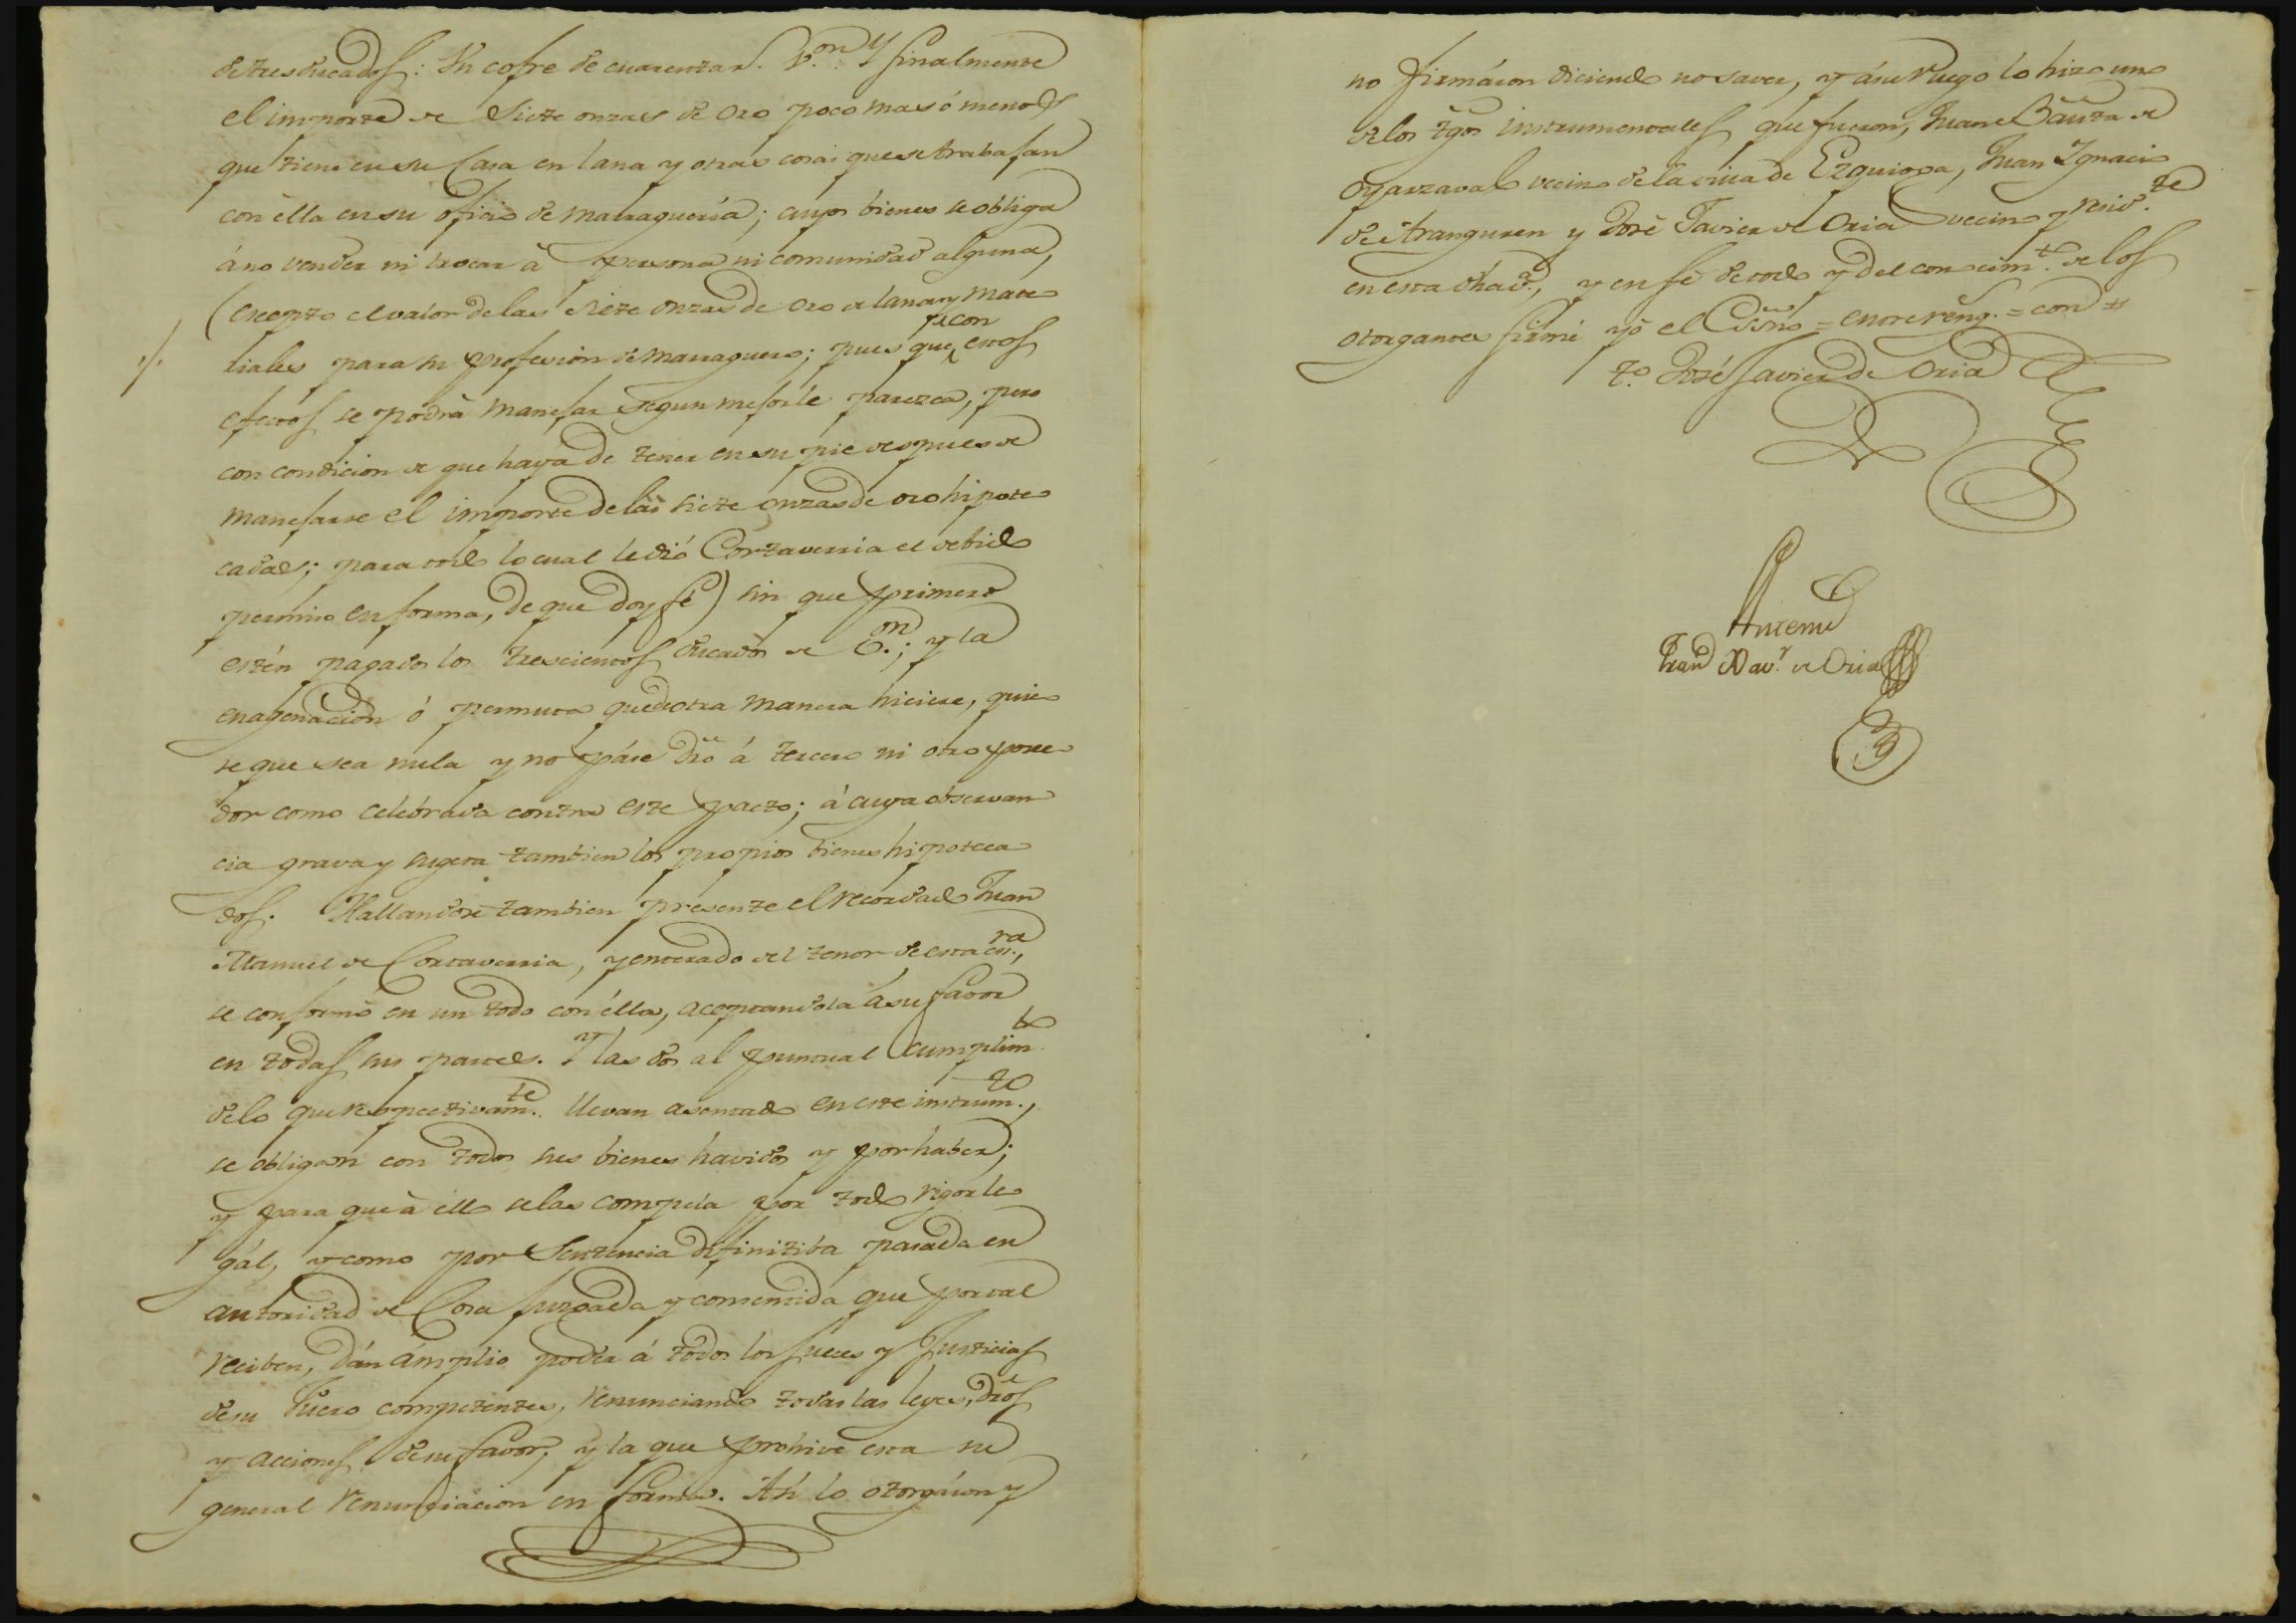 de tres ducados: Un cofre de cuarenta r. v.on Y finalmente
el importe de Siete onzas de oro poco mas ó menos
que tiene en su Casa en lana y otras cosas que se trabajan
con élla en su oficio de marraguería; cuyos bienes se obliga
á no vender ni trocar à persona ni comunidad alguna,
(excepto el valor de las siete onzas de oro de lana y mate
riales para su profesion de marraguero; pues que con estos
efectos se podrà manejar segun mejor le parezca, pero
con condicion de que haya de tener en su pie despues de
manejarse el importe de las siete onzas de oro hipote
cadas; para todo lo cual le dió Cortaverria el debido
permiso en forma, de que doy fé) sin que primero
estén pagados los trescientos ducados de v.on; y la
enagenacion ó permuta que de otra manera hiciere, quie
re que sea nula y no páse dro á tercero ni otro posee
dor como celebrada contra este pacto; á cuya observan
cia grava y sugeta tambien los propios bienes hipoteca
dos. Hallandose tambien presente el recordado Juan
Manuel de Cortaverria, y enterado del tenor de esta es.ra,
se conformó en un todo con élla, aceptandola á su favor
en todas sus partes. Y las dos al puntual cumplim.to
de lo que respectivam.te llevan asentado en este instrum.to,
se obligan con todos sus bienes havidos y por haber;
y para que à ello se las compela por todo rigor le
gál, y como por Sentencia difinitiba pasada en
autoridad de Cosa juzgada y consentida que por tal
reciben, dán ámplio poder á todos los Jueces y Justicias
de su Fuero competentes, renunciando todas las leyes, dros
y acciones de su favor, y la que prohive esta su
general renunciacion en forma. Asi lo otorgáron y
no firmáron diciendo no saver, y á su ruego lo hizo uno
de los tgos instrumentales que fueron, Juan Bauta de
Oyarzaval vecino de la villa de Ezquioga, Juan Ignacio
de Aranguren y José Javier de Oria vecino y resid.te
en esta dha v.a, y en fé de todo y del conocim.to de los
otorgantes firmé yo el Essno = entre reng. = con =
t.o José Javier de Oria
Antemi
Fran.co Xav.r de Oria